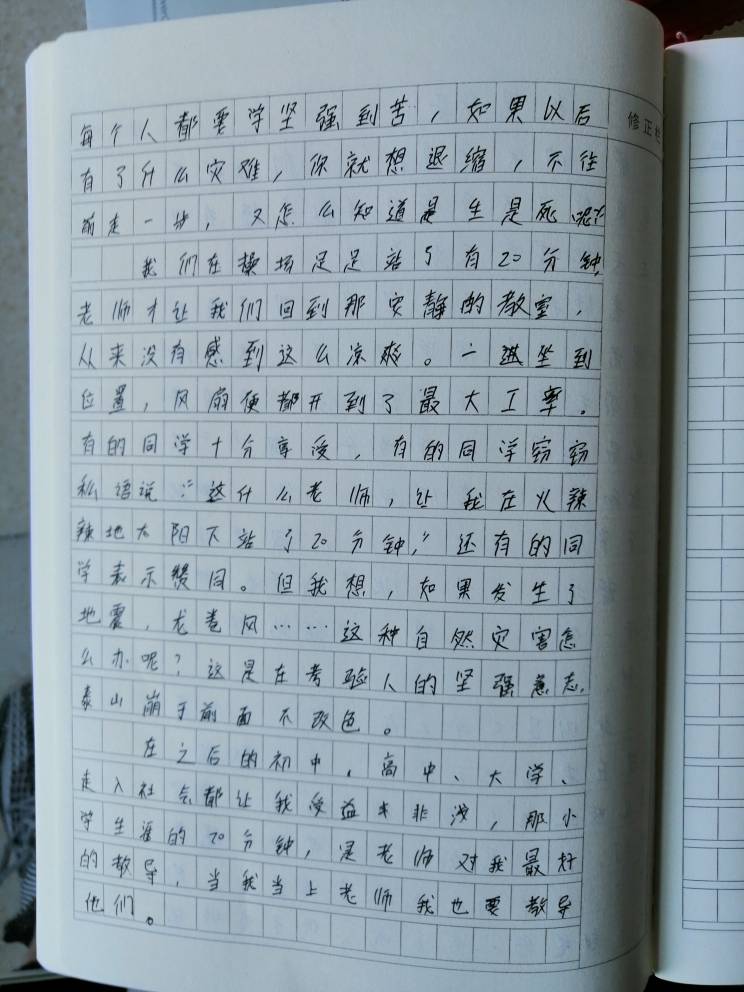 每个人都要学坚强到苦，如果以后
有了什么灾难，你就想退缩，不往
前走一步，又怎么知道是生是死呢？
我们在操场足足站了有20分钟，
老师才让我们回到那安静的教室，
从来没有感到这么凉爽。一进坐到
位置，风扇便都开到了最大工率。
有的同学十分享受，有的同学窃窃
私语说：“这什么老师，让我在火辣
辣地太阳下站了20分钟，”还有的同
学表示赞同。但我想，如果发生了
地震，龙卷风……这种自然灾害怎
么办呢？这是在考验人的坚强意志，
泰山崩于前面不改色。
在之后的初中，高中、大学、
走入社会都让我受益非浅，那小
学生涯的20分钟，是老师对我最好
的教导，当我当上老师我也要教导
他们。
修正栏